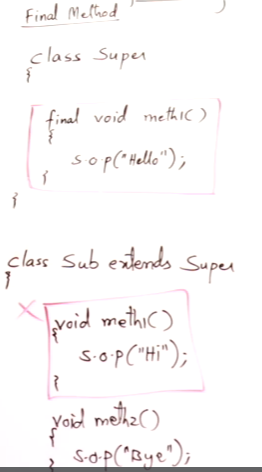 Final Method
class Super
{
final void meth1()
{
s.o.p("Hello");
}
}
class Sub extends Super
{
void meth1()
{
s.o.p("Hi");
}
void meth2()
{ s.o.p("Bye");